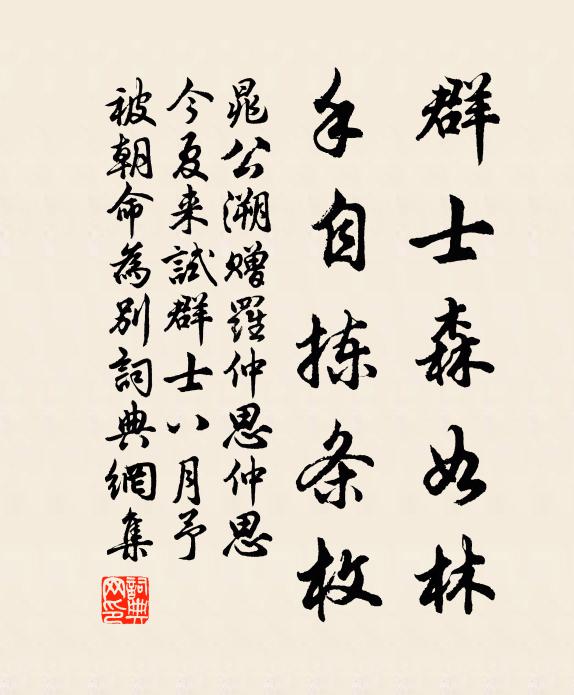 群士森如林
手自拣条枚
晁公溯赠羅仲思仲思
今夏来試群士八月予
被朝命為别詞典網集
詞典网印